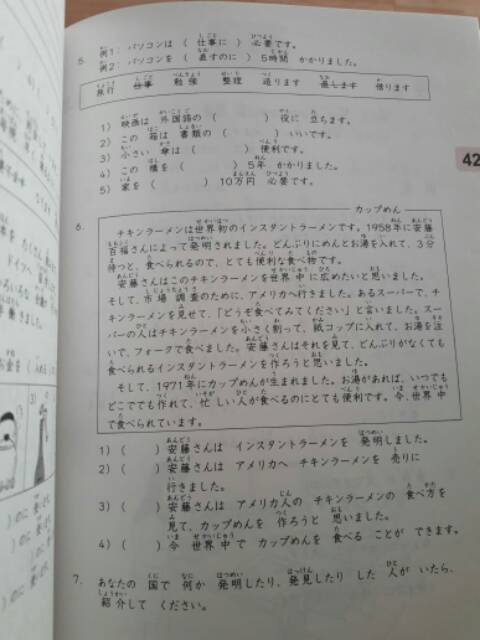 5. 例1：パソコンは （ 仕事に ） 必要です。
例2：パソコンを （ 直すのに ） 5時間 かかりました。
旅行 仕事 勉強 整理 造ります 直します 借ります
1） 映画は 外国語の （ ） 役に 立ちます。
2） この 箱は 書類の （ ） いいです。
3） 小さい 傘は （ ） 便利です。
4） この 橋を （ ） 5年 かかりました。
5） 家を （ ） 10万円 必要です。
42
6. カップめん
チキンラーメンは世界初のインスタントラーメンです。1958年に安藤
百福さんによって発明されました。どんぶりにめんとお湯を入れて、3分
待つと、食べられるので、とても便利な食べ物です。
安藤さんはこのチキンラーメンを世界中に広めたいと思いました。
そして、市場調査のために、アメリカへ行きました。あるスーパーで、チ
キンラーメンを見せて、「どうぞ食べてみてください」と言いました。スー
パーの人はチキンラーメンを小さく割って、紙コップに入れて、お湯を注
いで、フォークで食べました。安藤さんはそれを見て、どんぶりがなくても
食べられるインスタントラーメンを作ろうと思いました。
そして、1971年にカップめんが生まれました。お湯があれば、いつでも
どこででも作れて、忙しい人が食べるのにとても便利です。今、世界中
で食べられています。
1）（ ） 安藤さんは インスタントラーメンを 発明しました。
2）（ ） 安藤さんは アメリカへ チキンラーメンを 売りに
行きました。
3）（ ） 安藤さんは アメリカ人の チキンラーメンの 食べ方を
見て、カップめんを 作ろうと 思いました。
4）（ ） 今 世界中で カップめんを 食べる ことが できます。
7. あなたの 国で 何か 発明したり、発見したり した 人が いたら、
紹介して ください。